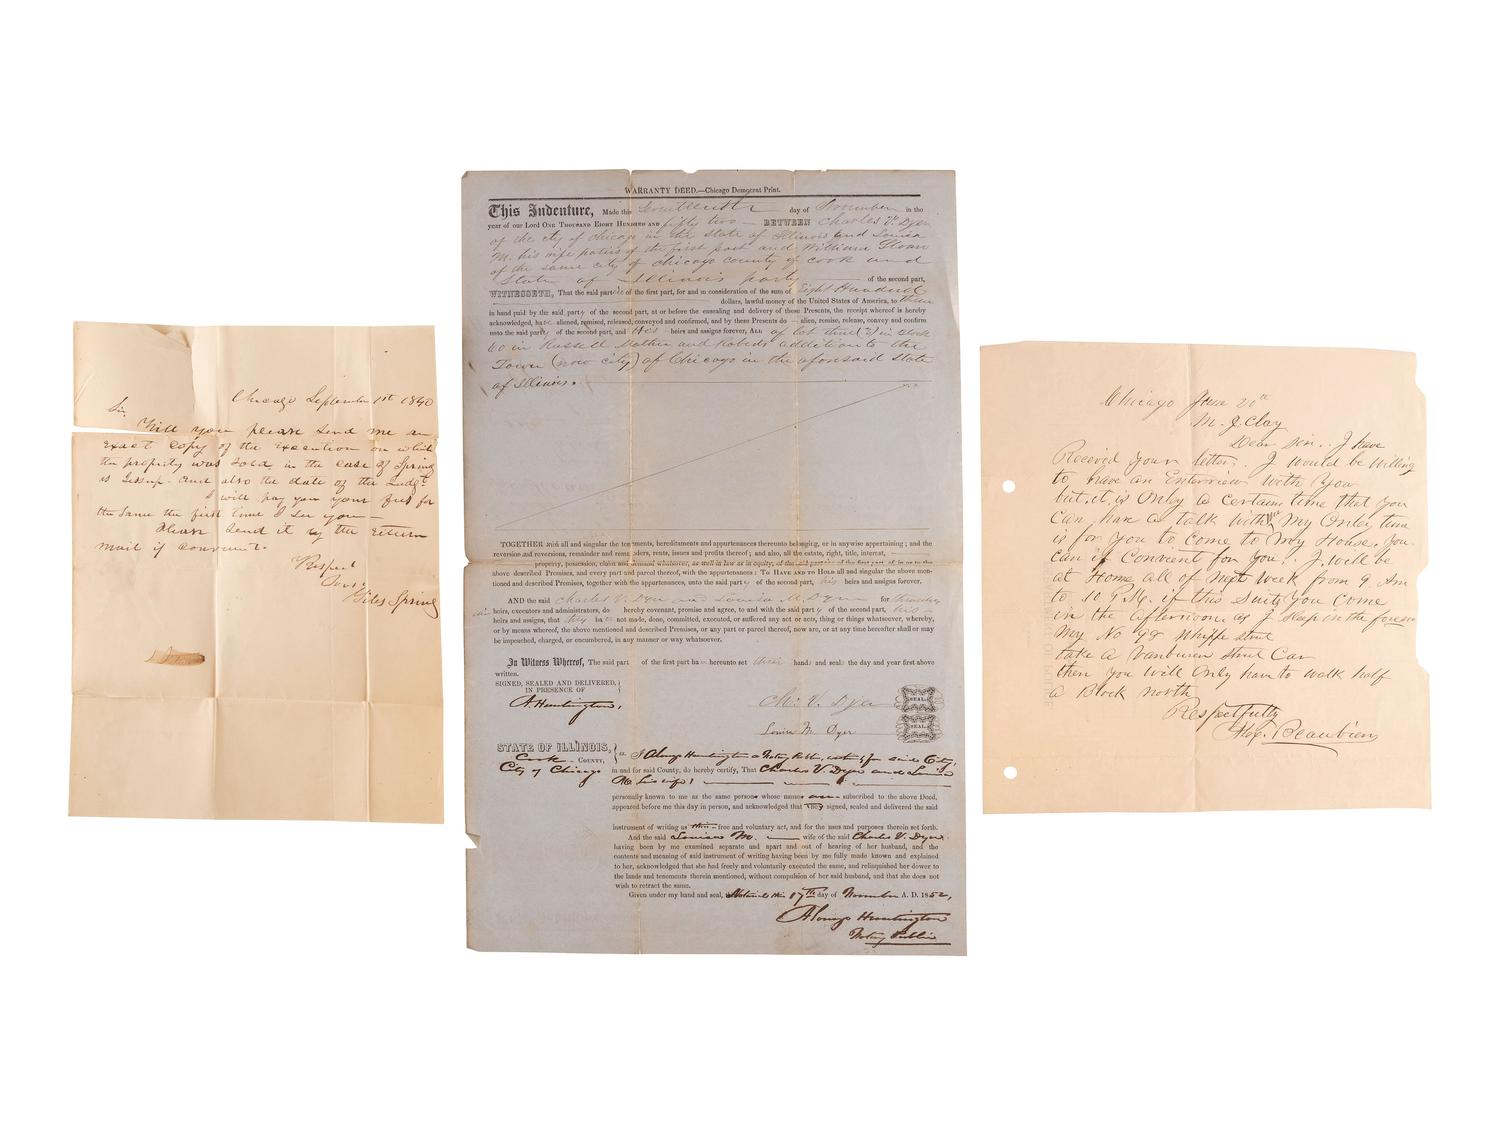 Chicago September 1st 1840
Sir,
Will you please send me an
exact copy of the execution on which
the property was sold, in the case of Spring
vs Jessup. and also the date of the Judgt
I will pay you your fees for
the same the first time I see you—
Please send it by the return
mail if convenient.
Respect
Yours
Giles Spring
WARRANTY DEED.—Chicago Democrat Print.
This Indenture, Made this Seventeenth day of November in the
year of our Lord ONE THOUSAND EIGHT HUNDRED AND fifty two — BETWEEN Charles V. Dyer
of the city of Chicago in the state of Illinois and Louisa
M. his wife parties of the first part and William Sloan
of the same city of Chicago county of Cook and
State of Illinois party of the second part,
WITNESSETH, That the said parties of the first part, for and in consideration of the sum of Eight Hundred
dollars, lawful money of the United States of America, to them
in hand paid by the said party of the second part, at or before the ensealing and delivery of these Presents, the receipt whereof is hereby
acknowledged, have aliened, remised, released, conveyed and confirmed, and by these Presents do — alien, remise, release, convey and confirm
unto the said party of the second part, and His heirs and assigns forever, ALL of lot three (3) in Block
60 in Russell Mather and Roberts addition to the
Town (now city) of Chicago in the aforesaid state
of Illinois.
TOGETHER with all and singular the tenements, hereditaments and appurtenances thereunto belonging, or in anywise appertaining; and the
reversion and reversions, remainder and remainders, rents, issues and profits thereof; and also, all the estate, right, title, interest,
property, possession, claim and demand whatsoever, as well in law as in equity, of the said parties of the first part, of, in or to the
above described Premises, and every part and parcel thereof, with the appurtenances: TO HAVE AND TO HOLD all and singular the above men-
tioned and described Premises, together with the appurtenances, unto the said party of the second part, his heirs and assigns forever.
AND the said Charles V. Dyer and Louisa M. Dyer for themselves their
heirs, executors and administrators, do hereby covenant, promise and agree, to and with the said party of the second part, his —
heirs and assigns, that they have not made, done, committed, executed, or suffered any act or acts, thing or things whatsoever, whereby,
or by means whereof, the above mentioned and described Premises, or any part or parcel thereof, now are, or at any time hereafter shall or may
be impeached, charged, or encumbered, in any manner or way whatsoever.
In Witness Whereof, The said part of the first part ha hereunto set their hand and seal the day and year first above
written.
SIGNED, SEALED AND DELIVERED,
IN PRESENCE OF
A. Huntington,
Chs. V. Dyer SEAL.
Louisa M. Dyer SEAL.
STATE OF ILLINOIS,
Cook COUNTY,
City of Chicago
ss. I Alonzo Huntington a Notary Public, within & for said City,
in and for said County, do hereby certify, That Charles V. Dyer and Louisa
M. his wife,
personally known to me as the same persons whose names are subscribed to the above Deed,
appeared before me this day in person, and acknowledged that they signed, sealed and delivered the said
instrument of writing as their free and voluntary act, and for the uses and purposes therein set forth.
And the said Louisa M. wife of the said Charles V. Dyer
having been by me examined separate and apart and out of hearing of her husband, and the
contents and meaning of said instrument of writing having been by me fully made known and explained
to her, acknowledged that she had freely and voluntarily executed the same, and relinquished her dower to
the lands and tenements therein mentioned, without compulsion of her said husband, and that she does not
wish to retract the same.
Given under my hand and seal, Notarial this 17th day of November A. D. 1852,
Alonzo Huntington
Notary Public
Chicago June 20th
M. J. Clay
Dear Sir. I have
Receved your letter. I would be willing
to have an Enterview with you
but it is only a certain time that you
can have a talk with me My only time
is for you to come to My House. You
can if convient for you. I will be
at Home all of next week from 9 Am
to 10 P.M. if this Suits you come
in the afternoon as I sleep in the forenoon
My No 92 Whipple street
take a Vanburen street Car
then you will only have to walk half
a Block north
Respectfully
Alex. Beaubien